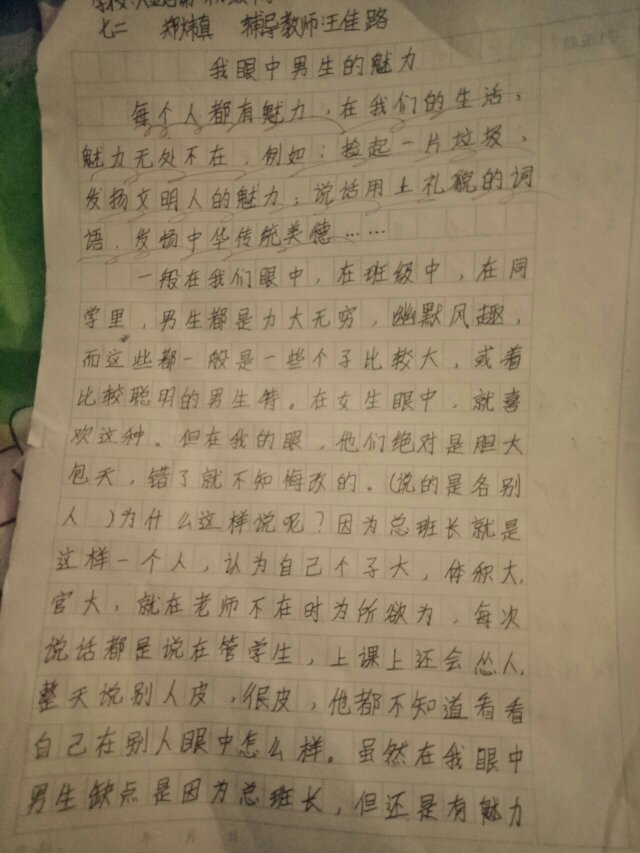 七二 郑炜真 辅导教师汪佳路
我眼中男生的魅力
每个人都有魅力，在我们的生活，
魅力无处不在，例如：捡起一片垃圾，
发扬文明人的魅力；说话用上礼貌的词
语，发扬中华传统美德……
一般在我们眼中，在班级中，在同
学里，男生都是力大无穷，幽默风趣，
而这些都一般是一些个子比较大，或着
比较聪明的男生特。在女生眼中，就喜
欢这种。但在我的眼，他们绝对是胆大
包天，错了就不知悔改的。（说的是名别
人）为什么这样说呢？因为总班长就是
这样一个人，认为自己个子大，体积大，
官大，就在老师不在时为所欲为，每次
说话都是说在管学生，上课上还会怂人，
整天说别人皮，很皮，他都不知道看看
自己在别人眼中怎么样。虽然在我眼中
男生缺点是因为总班长，但还是有魅力
年 月 日